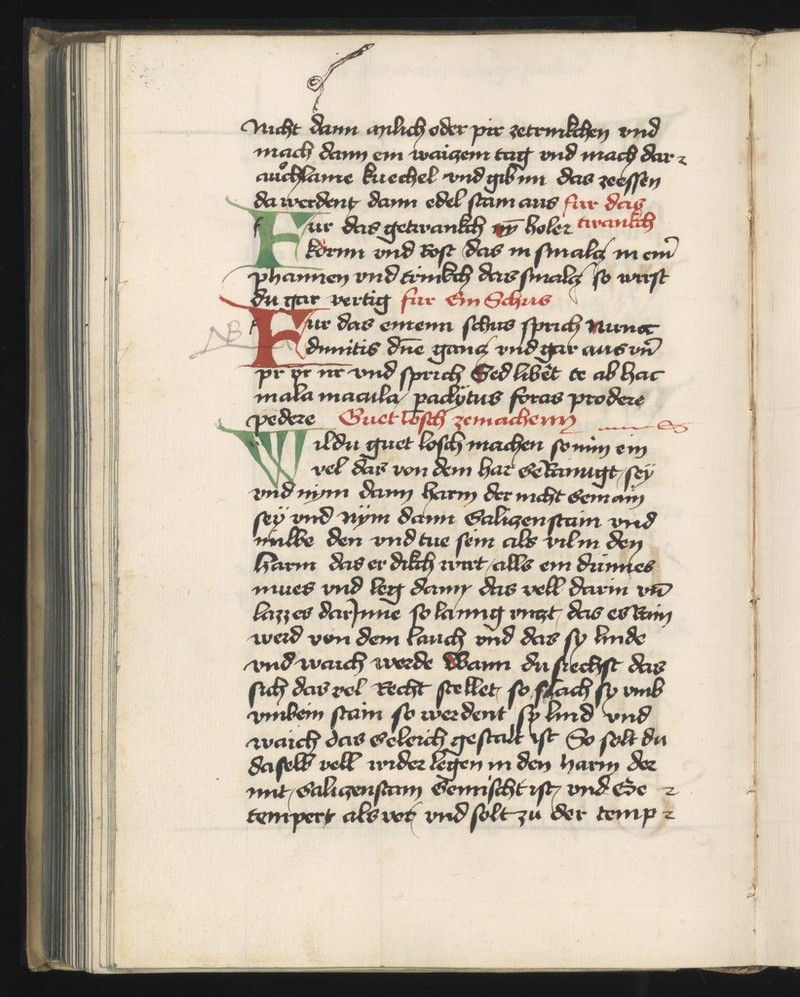 Nicht dann milich oder pir zetrinkchen vnd
mach dann ein waizem taig vnd mach dar
auch klaine kuechel vnd gib im das zeessen
da werdent dann edel stain aus für das
Für das getwankch nym holer twankch
körnn vnd Rost das in smalcz in einer
phannen vnd trinkch das smalcz so wirst
du gar vertig für Ein Schus
Für das einenn schus sprich Nunc
dimitis dne gancz vnd gar aus vnd
pr pr nr vnd sprich Sed libet te ab hac
mala macula paclitus foras prodere
pedere Guet lösch zemachenn
Wildu guet losch machen so nim ein
vel das von dem har geRamigt sey
vnd nym dann harm der nicht gemain
sey vnd Nym dann Galiczenstain vnd
mülbe den vnd tue sein als vil in den
harm das er dikch wirt alls ein dünnes
mues vnd leg dann das vell darin vnd
lazz es darJnne so lanng vnczt das es Rain
werd von dem lauch vnd das sy linde
vnd waich werde Wann du siechst das
sich das vel Recht stellet so slach sy vmb
vmb ein stain so werdent sy lind vnd
waich das geleich gestalt ist So solt du
daselb vell wider legen in den harm der
mit Galiczenstain gemischt ist vnd Ge
tempert als vor vnd solt zu der temp